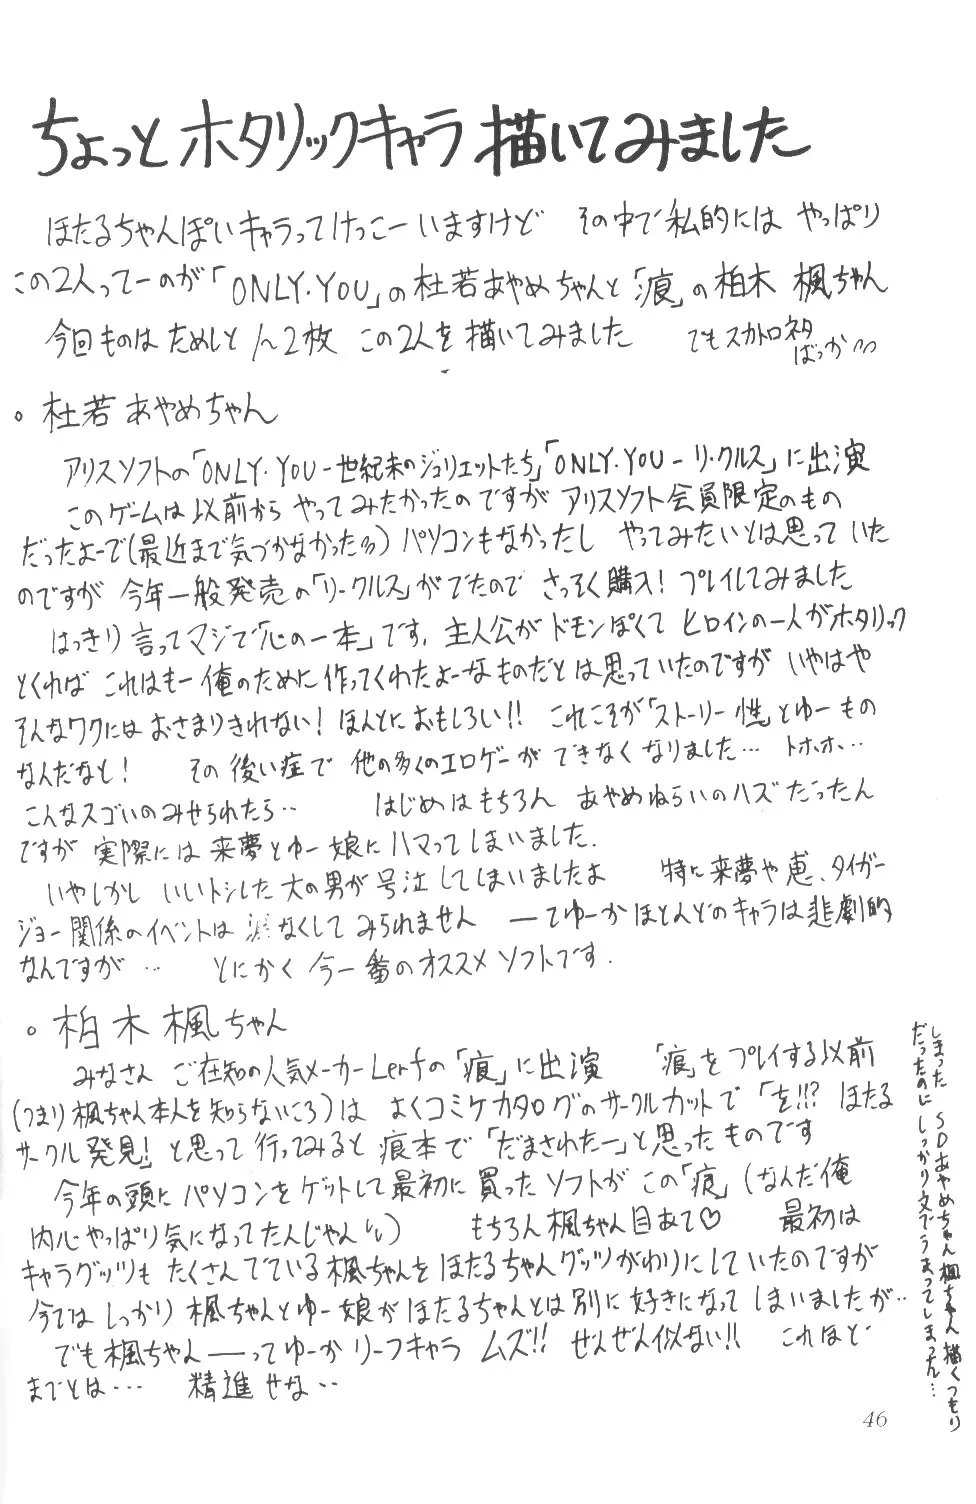 ちょっとホタリックキャラ描いてみました
ほたるちゃんぽいキャラってけっこーいますけど その中で私的には やっぱり
この2人ってーのが「ONLY.YOU」の杜若あやめちゃんと「痕」の柏木 楓ちゃん
今回ものはためしと 2枚 この2人を描いてみました でもスカトロネタ
ばっか
。杜若あやめちゃん
アリスソフトの「ONLY.YOU-世紀末のジュリエットたち」「ONLY.YOU-リ・クルス」に出演
このゲームは以前から やってみたかったのですが アリスソフト会員限定のもの
だったよーで(最近まで気づかなかった) パソコンもなかったし やってみたいとは思っていた
のですが 今年一般発売の「リ・クルス」がでたので さっそく購入! プレイしてみました
はっきり言ってマジで「心の一本」です. 主人公が ドモンぽくて ヒロインの一人がホタリック
とくれば これはもー俺のために作ってくれたよーなものだとは思っていたのですが いやはや
そんなワクにはおさまりきれない! ほんとにおもしろい!! これこそが「ストーリー性」とゆーもの
なんだなと! その後い症で 他の多くのエロゲーができなくなりました… トホホ…
こんなスゴいのみせられたら‥ はじめはもちろん あやめねらいのハズだったん
ですが 実際には来夢とゆー娘にハマってしまいました.
いやしかし いいトシした大の男が号泣してしまいましたよ 特に来夢や恵、タイガー
ジョー関係のイベントは 涙なくしてみられません ―てゆーかほとんどのキャラは悲劇的
なんですが… とにかく今一番のオススメソフトです.
。柏木 楓ちゃん
みなさん ご存知の人気メーカーLerfの「痕」に出演 「痕」をプレイする以前
(つまり楓ちゃん本人を知らないころ)は よくコミケカタログのサークルカットで 「を!!? ほたる
サークル発見!」と思って行ってみると 痕本で「だまされたー」と思ったものです
今年の頭にパソコンをゲットして最初に買ったソフトがこの「痕」(なんだ俺
内心やっぱり気になってたんじゃん) もちろん楓ちゃん目あて♡ 最初は
キャラグッツもたくさんでている楓ちゃんをほたるちゃんグッツがわりにしていたのですが
今ではしっかり楓ちゃんとゆー娘がほたるちゃんとは別に好きになってしまいましたが‥
でも楓ちゃん――ってゆーかリーフキャラ ムズ!! ぜんぜん似ない!! これほど
までとは… 精進せな‥
しまった SDあやめちゃん楓ちゃん描くつもり
だったのにしっかり文でうまってしまった…
46